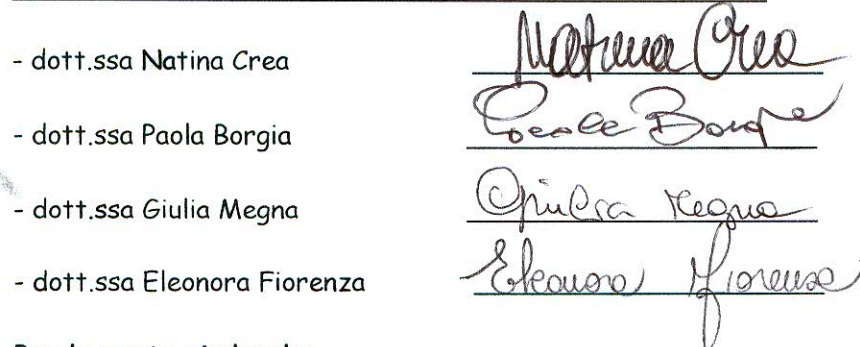 - dott.ssa Natina Crea Natina Crea
- dott.ssa Paola Borgia Paola Borgia
- dott.ssa Giulia Megna Giulia Megna
- dott.ssa Eleonora Fiorenza Eleonora Fiorenza